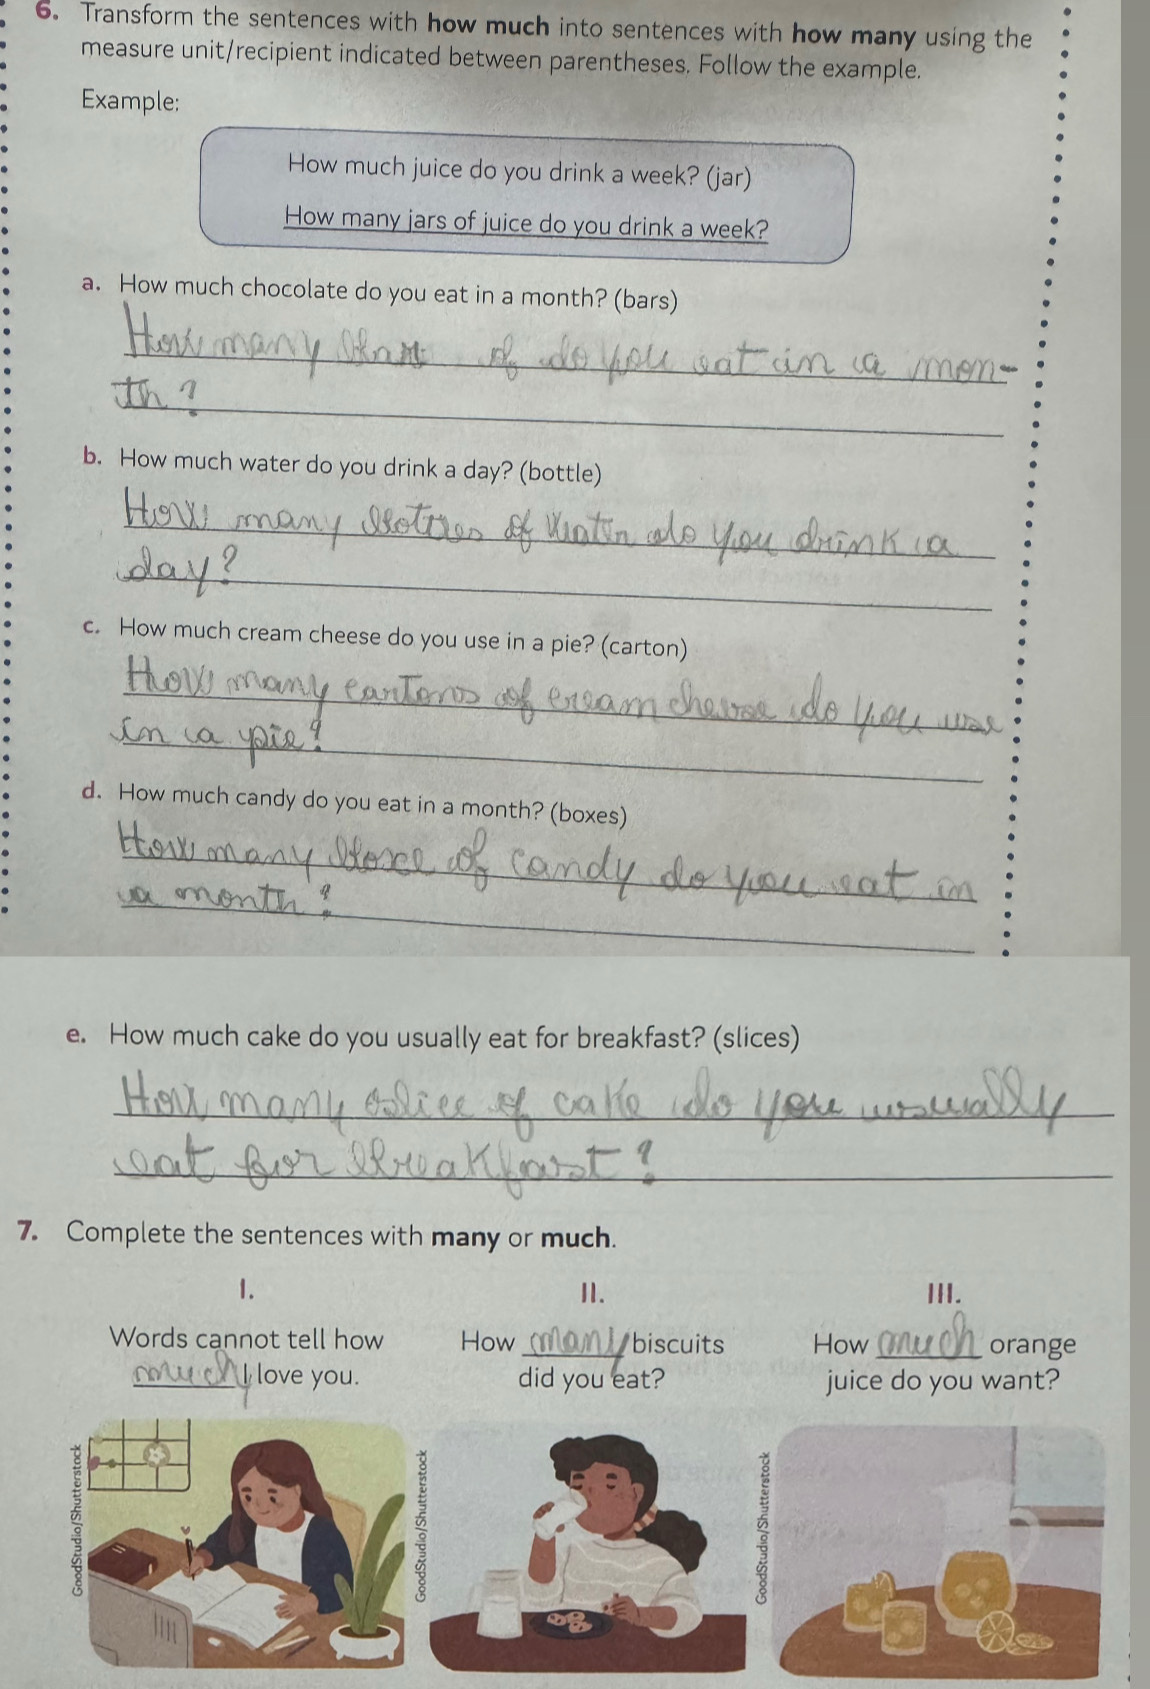 6. Transform the sentences with how much into sentences with how many using the
measure unit/recipient indicated between parentheses. Follow the example.
Example:
How much juice do you drink a week? (jar)
How many jars of juice do you drink a week?
a. How much chocolate do you eat in a month? (bars)
How many of do you eat in a mon-
th?
b. How much water do you drink a day? (bottle)
How many of do you drink a
day?
c. How much cream cheese do you use in a pie? (carton)
How many cartons of cream cheese do you use
in a pie?
d. How much candy do you eat in a month? (boxes)
How many boxe of candy do you eat in
a month?
e. How much cake do you usually eat for breakfast? (slices)
How many slice of cake do you usually
eat for breakfast?
7. Complete the sentences with many or much.
I.
II.
III.
Words cannot tell how
much I love you.
How many biscuits
did you eat?
How much orange
juice do you want?
GoodStudio/Shutterstock
GoodStudio/Shutterstock
GoodStudio/Shutterstock